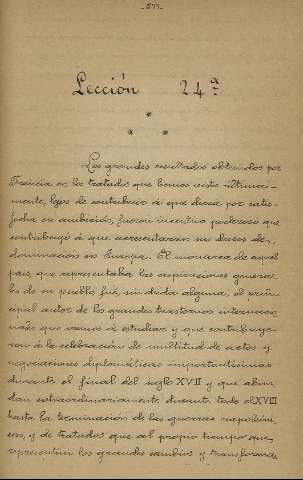 Lección 24ª
* * *
Los grandes resultados obtenidos por
Francia en los tratados que hemos visto última-
mente, lejos de contribuir á que diera por satis-
fecha su ambición, fueron incentivo poderoso que
contribuyó á que acrecentaran sus deseos de
dominación en Europa. El monarca de aquel
pais que representaba las aspiraciones genera-
les de su pueblo fué, sin duda alguna, el prin-
cipal autor de los grandes trastornos internacio-
nales que vamos á estudiar y que contribuye-
ron á la celebración de multitud de actos y
negociaciones diplomáticas importantísimas
durante el final del siglo XVII y que abun-
dan extraordinariamente durante todo el XVIII
hasta la terminación de las guerras napoleóni-
cas, y de tratados que al propio tiempo que
representan los grandes cambios y transforma-